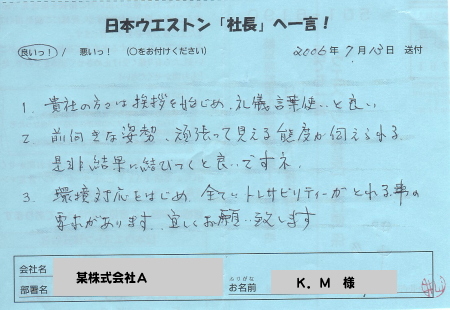 日本ウエストン「社長」へ一言！
良いっ！ / 悪いっ！ (○をお付けください) 2006年 7月13日 送付
1. 貴社の方々は挨拶を始じめ、礼儀言葉使いと良い
2. 前向きな姿勢、頑張って見える態度が伺えられる
是非結果に結びつくと良いですネ
3. 環境対応をはじめ、全てトレサビリティーがとれる事の
要求があります。宜しくお願い致します
会社名 某株式会社A
部署名 ふりがな お名前 K．M 様